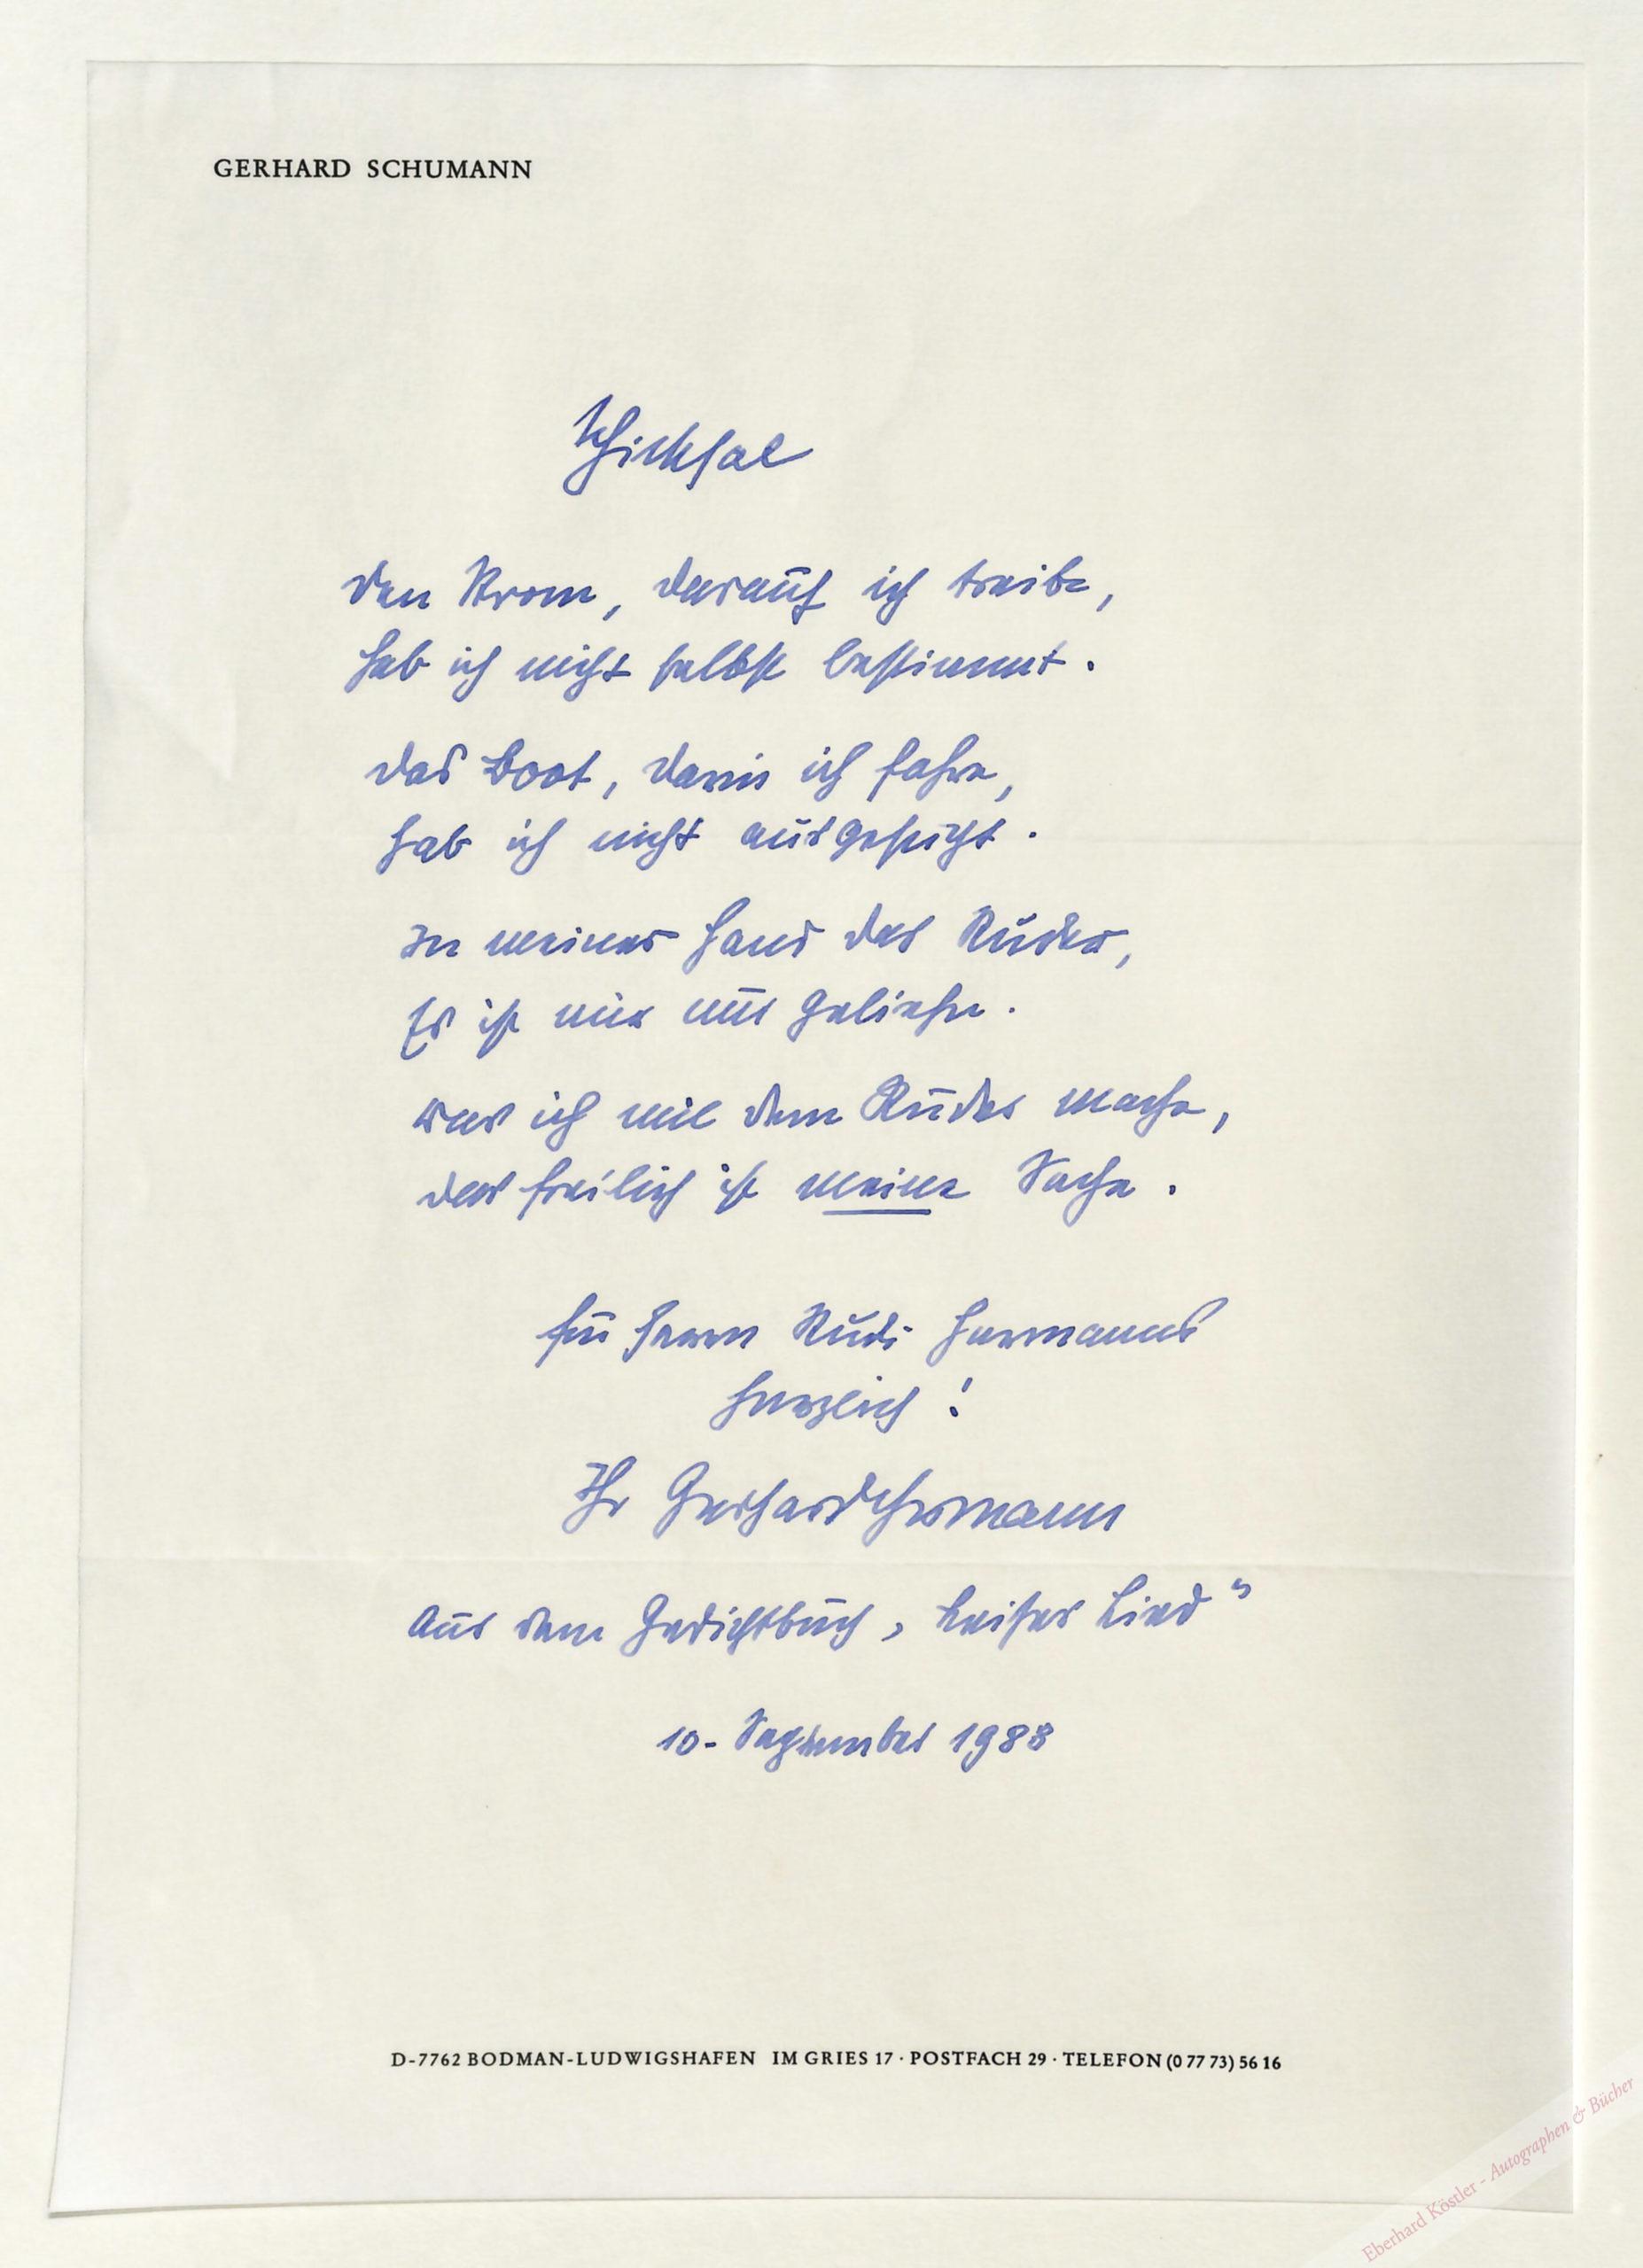 GERHARD SCHUMANN
Schicksal
Den Strom, darauf ich treibe,
hab ich nicht selbst bestimmt.
Das Boot, darin ich fahre,
hab ich nicht ausgesucht.
In meiner Hand das Ruder,
Es ist mir nur geliehn.
Was ich mit dem Ruder mache,
das freilich ist meine Sache.
Für Herrn Rudi Hermanns
herzlich!
Ihr Gerhard Schumann
Aus dem Gedichtbuch „Leises Lied"
10. September 1988
D-7762 BODMAN-LUDWIGSHAFEN IM GRIES 17 · POSTFACH 29 · TELEFON (0 77 73) 56 16
Eberhard Köstler - Autographen & Bücher